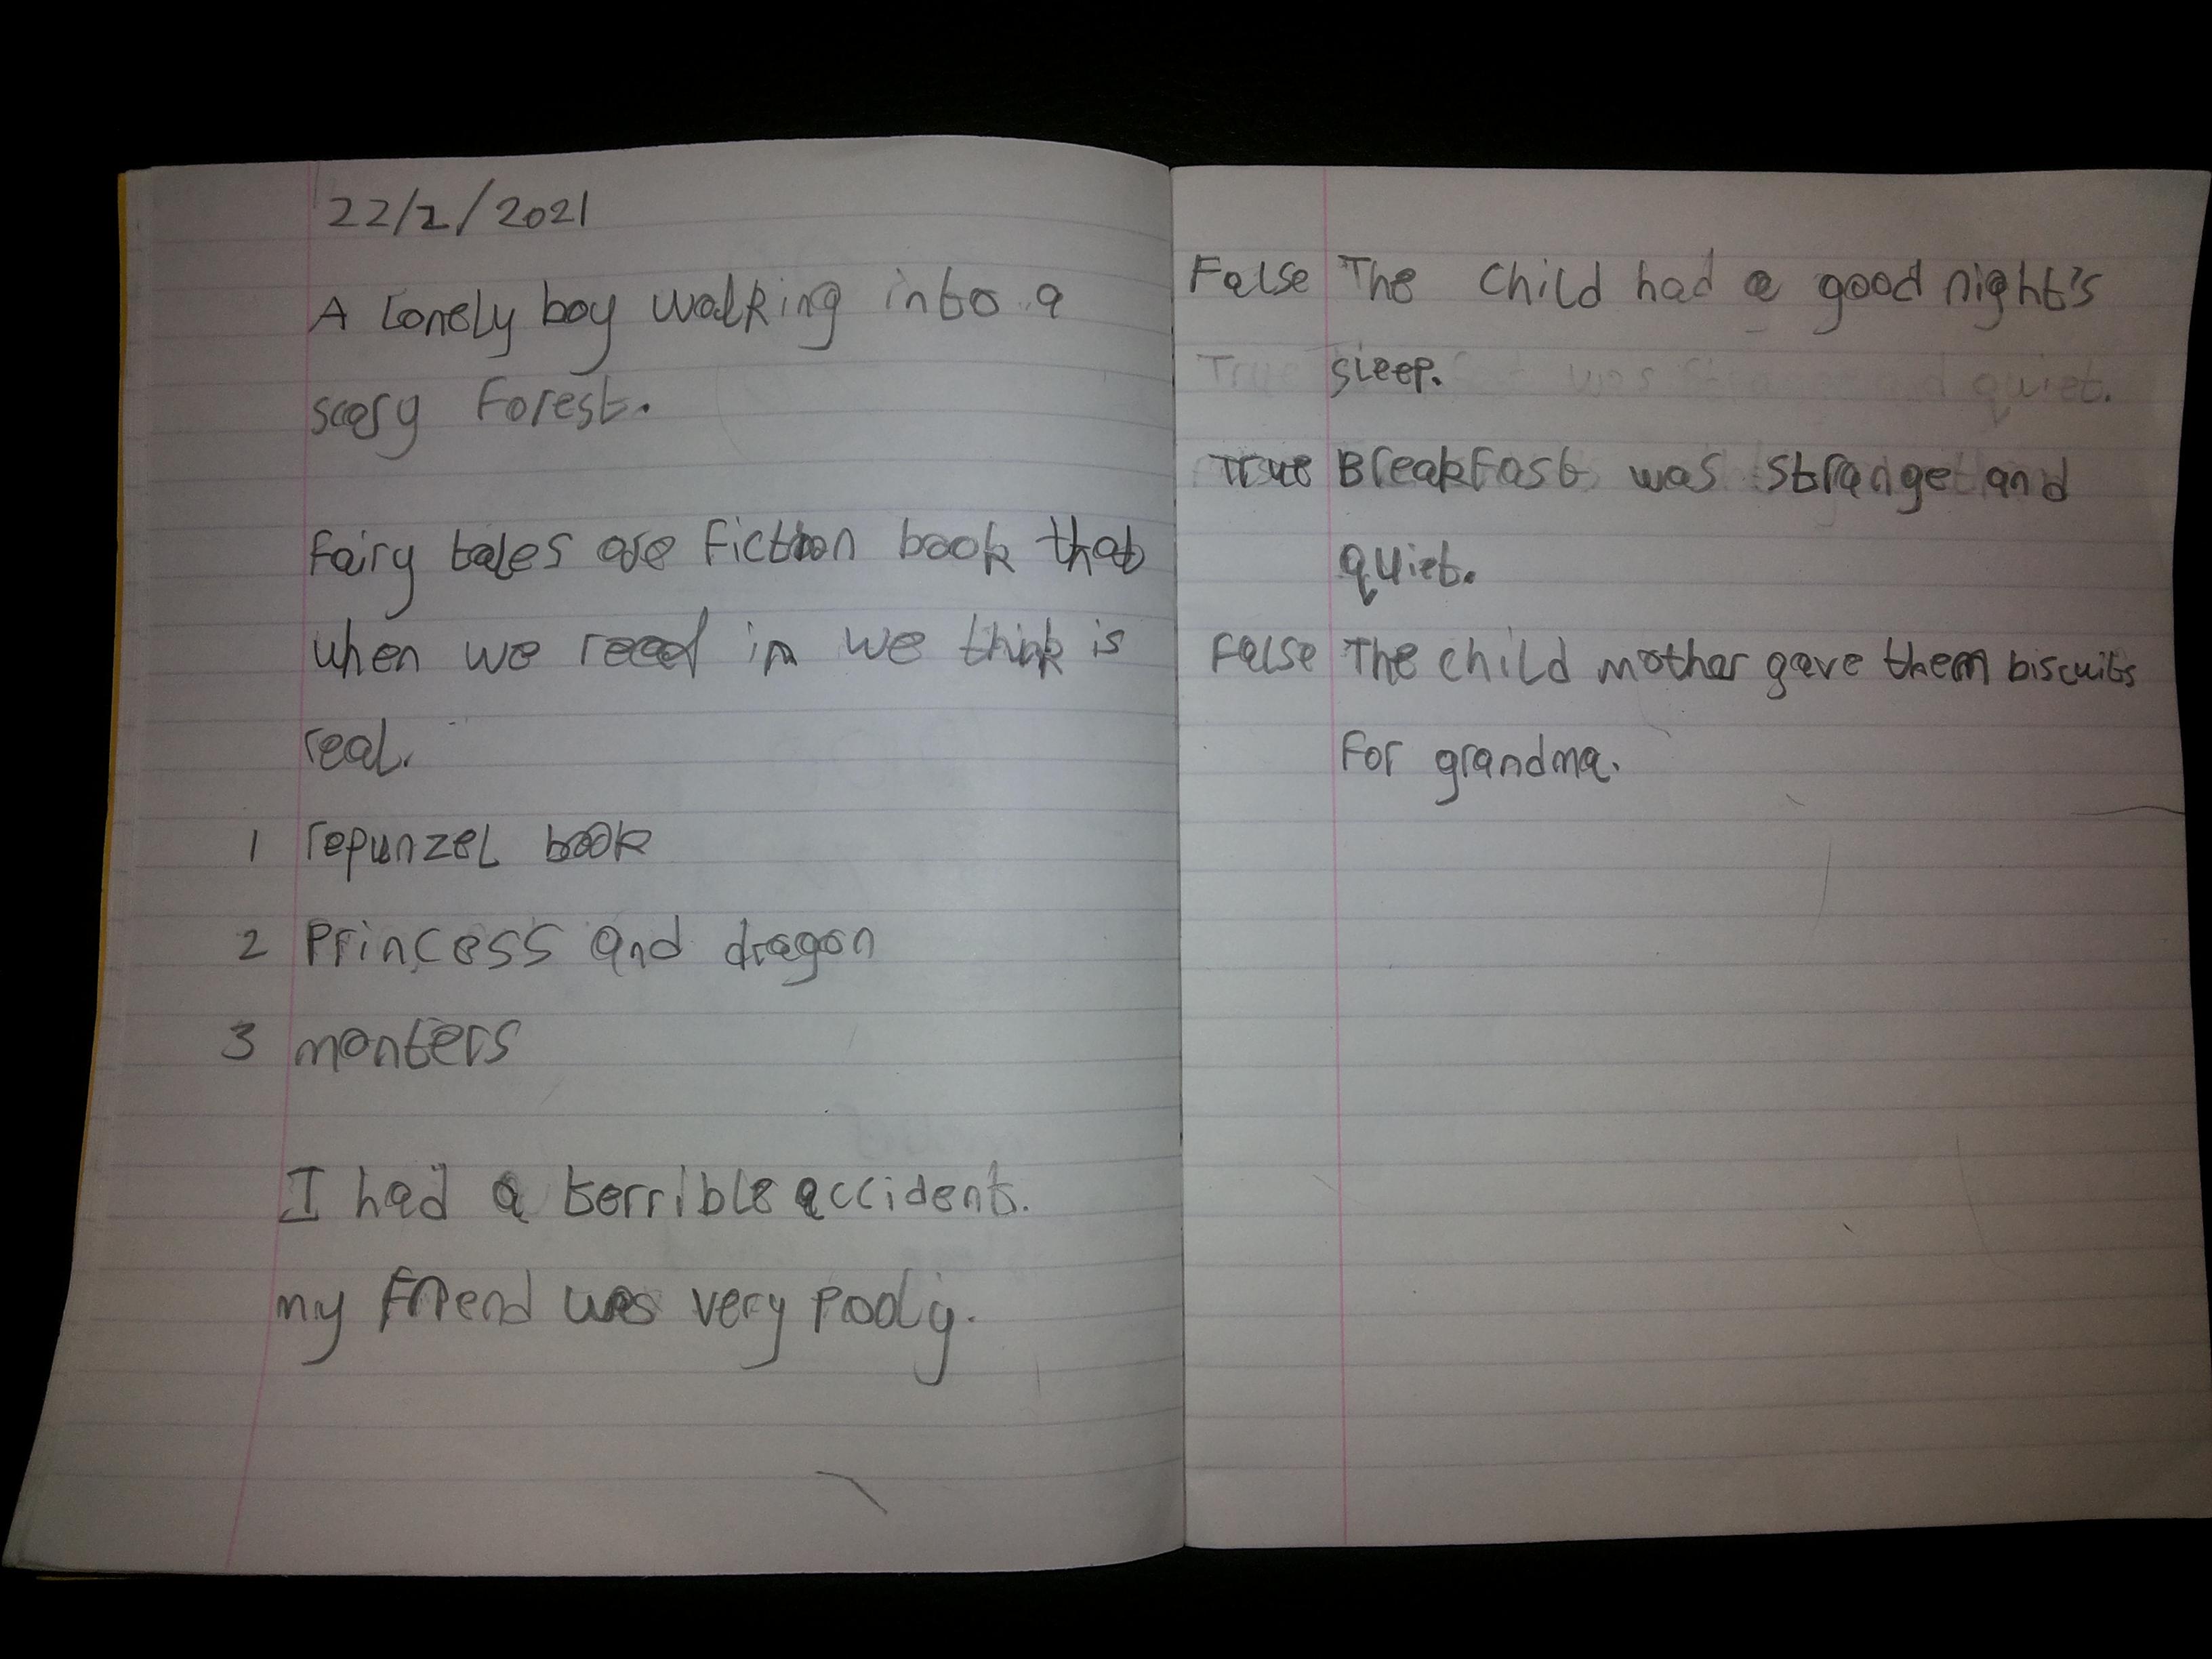 22/2/2021
A Lonely boy walking into a
scary Forest.
Fairy tales are Fiction book that
when we read in we think is
real.
1 repunzel book
2 Princess and dragon
3 monters
I had a terrible accident.
my friend was very pooly.
False The child had a good night's
sleep.
True quiet.
True Breakfast was strange and
quiet.
False The child mother gave them biscuits
For grandma.